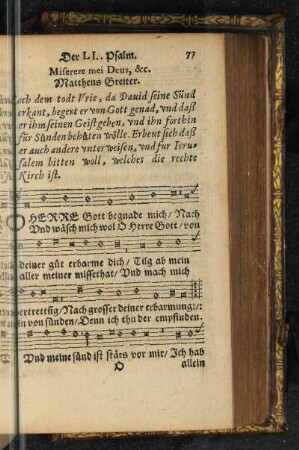 Der LI. Psalm. 77
Miserere mei Deus, &c.
Mattheus Greiter.
Nach dem todt Vrie, da Dauid seine Sünd
erkant, begert er von Gott genad, vnd daß
er ihm seinen Geist geben, vnd ihn forthin
für Sünden behüten wölle. Erbeut sich daß
er auch andere vnterweisen, vnd für Ieru-
salem bitten woll, welches die rechte
Kirch ist.
O HERRE Gott begnade mich / Nach
Vnd wäsch mich wol O Herre Gott / von
deiner güt erbarme dich / Tilg ab mein
aller meiner missethat / Vnd mach mich
vbertrettũg / Nach grosser deiner erbarmung:/:
rein von sünden / Denn ich thu der empfinden.
Vnd meine sünd ist stäts vor mir / Ich hab
O allein